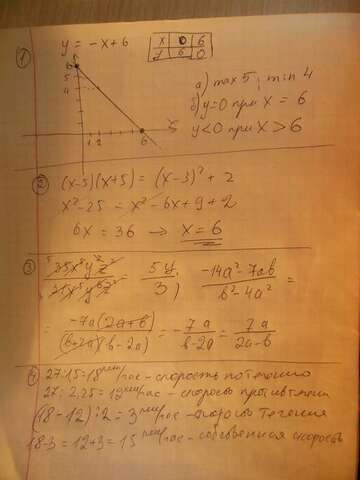 ① y = -x+6
x 0 6
y 6 0
а) max 5 ; min 4
б) y=0 при x = 6
y<0 при x > 6
6
5
4
1 2 6 x
② (x-5)(x+5) = (x-3)² + 2
x² - 25 = x² - 6x + 9 + 2
6x = 36 → x = 6
③ = 5y/3 ; (-14a² - 7ab)/(b² - 4a²) =
= -7a(2a+b)/((b+2a)(b-2a)) = -7a/(b-2a) = 7a/(2a-b)
④ 27:1,5=18 км/час - скорость по течению
27 : 2,25 = 12 км/час - скорость против течения
(18 - 12) : 2 = 3 км/час - скорость течения
18-3 = 12+3 = 15 км/час - собственная скорость